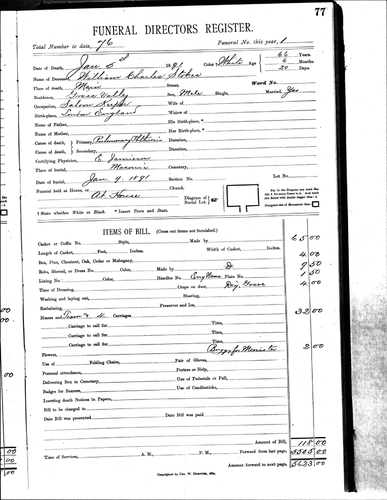 77
FUNERAL DIRECTORS REGISTER.
Total Number to date, 76 Funeral No. this year, 1
Date of Death, Jan 5th 1891 Color* White Age 66 Years
6 Months
20 Days
Name of Deceased William Charles Stokes
Place of Death, Main Street, Ward No.
Residence, Grass Valley Sex, Male Single, Married, Yes
Occupation, Saloon Keeper Wife of
Birth-place, London England Widow of
Name of Father, His Birth-place, *
Name of Mother, Her Birth-place, *
Cause of death, Primary, Pulmonary Duration,
Cause of death, Secondary, Duration,
Certifying Physician, E. Jamieson
Place of burial, Masonic Cemetery,
Date of burial, Jan. 9. 1891 Section No. Lot No.
Funeral held at House, At House Church
Diagram of Burial Lot
† State whether White or Black. * Insert Town and State.
ITEMS OF BILL. (Cross out items not furnished.)
Casket or Coffin No. Style, Made by 65.00
Length of Casket, Feet, Inches. Width of Casket, Inches. 4.00
Box, Pine, Chestnut, Oak, Cedar or Mahogany, 9.50
Robe, Shroud, or Dress No. Color, Made by Do 1.50
Lining No. Color, Handles No. Plate No.
Time of Dressing, Crape on door, Dig Grave 4.00
Washing and laying out, Shaving,
Embalming, Preserver and Ice,
Hearse and Team & 4 Carriages 32.00
Carriage to call for Time,
Carriage to call for Time,
Carriage to call for Time,
Flowers, Buggy for Minister 2.00
Use of Folding Chairs, Pair of Gloves,
Personal attendance, Porters or Help,
Delivering Box to Cemetery, Use of Pedestals or Pall,
Badges for Bearers, Use of Candlesticks,
Inserting Death Notices in Papers,
Bill to be charged to
Date Bill was presented Date Bill was paid
Amount of Bill, 118.00
Time of Services, A. M., P. M., Forward from last page, 5505.00
Amount forward to next page, 5623.00